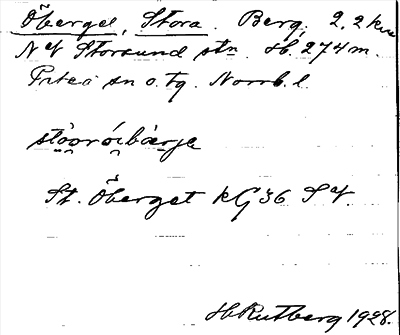 Öberget, Stora. Berg, 2,2 km
NV Storsund stn. H. 274 m.
Piteå sn o. tg. Norrb. l.
St. Öberget kG 36 SV.
H Rutberg 1928.